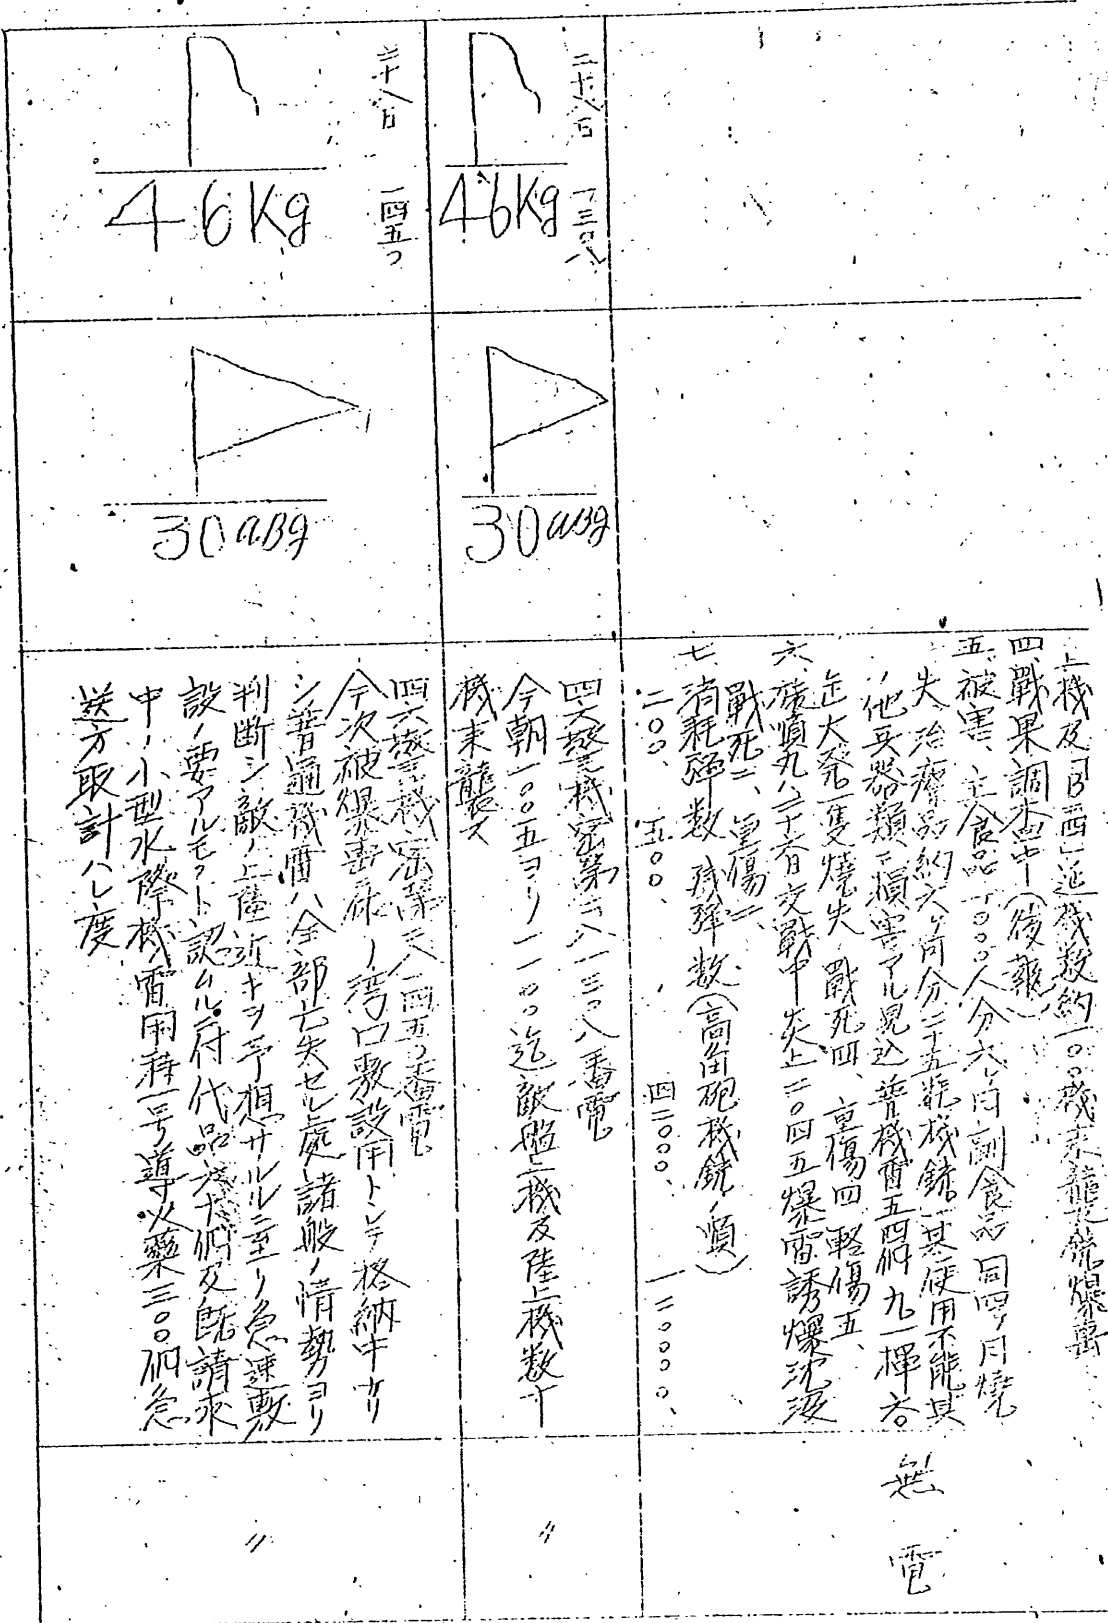 上機及「B四」延機数約一〇〇機来襲銃爆撃
四、戦果調査中(後報)
五、被害、主食品一〇〇〇人分六ヶ月副食品同四ヶ月焼
失治療品約六ヶ月分二十五粍機銃一基使用不能其
ノ他兵器類ニ損害アル見込普機雷五四個九一揮六〇
缶大発一隻焼失、戦死四、重傷四軽傷五、
六、
交戦中炎上二〇四五爆雷誘爆沈没
戦死二、重傷二、
七、消耗弾数 残弾数(高角砲機銃ノ順)
二〇〇、五〇〇、四二〇〇〇、一二〇〇〇〇、
無電
二十八日 一三〇八
46Kg
30aBg
四六警機密第二八一三〇八番電
今朝一〇〇五ヨリ一一〇〇迄敵艦上機及陸上機数十
機来襲ス
〃
二十八日 一四五〇
46Kg
30aBg
四六警機密第二八一四五〇番電
今次被爆害
湾口敷設用トシテ格納中ナリ
シ普通機雷ハ全部亡失セル処諸般ノ情勢ヨリ
判断シ敵ノ上陸近キヲ予想サルルニ至リ急速敷
設ノ要アルモノト認ムルニ付代品
個及既請求
中ノ小型水際機雷用
一号導火薬三〇〇個急
送方取計ハレ度
〃